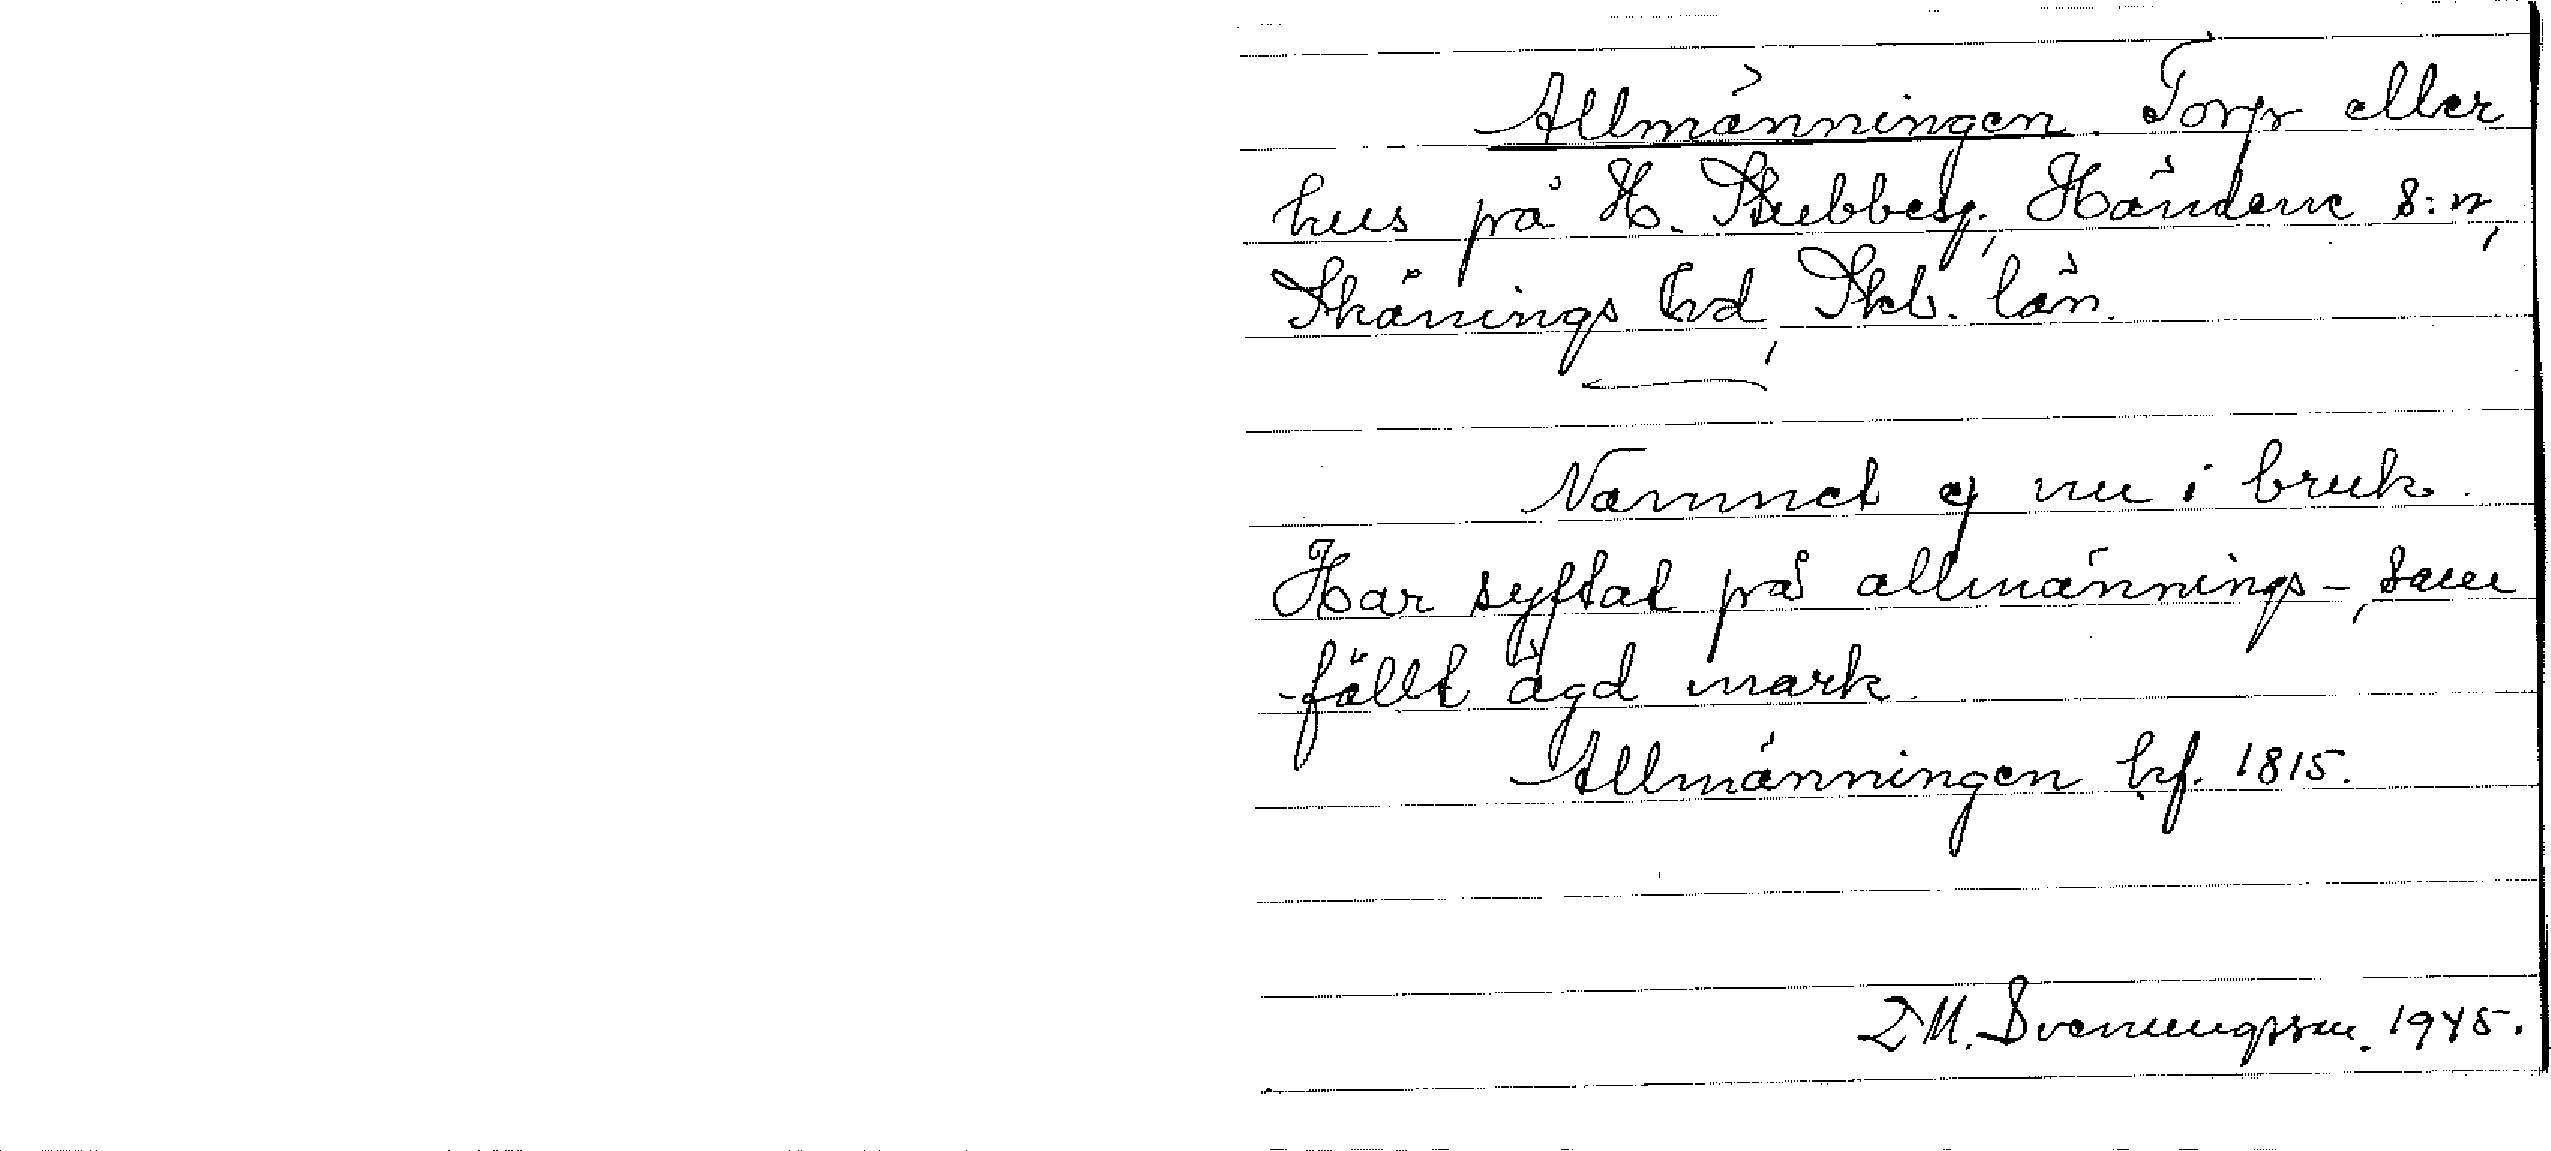 Allmänningen. Torp eller
hus på H. Stubbeg., Händene s:n,
Skånings hd, Skb. län.
Namnet ej nu i bruk.
Har syftat på allmännings-, sam
-fällt ägd mark.
Allmänningen hf. 1815.
M. Svenungsson. 1945.